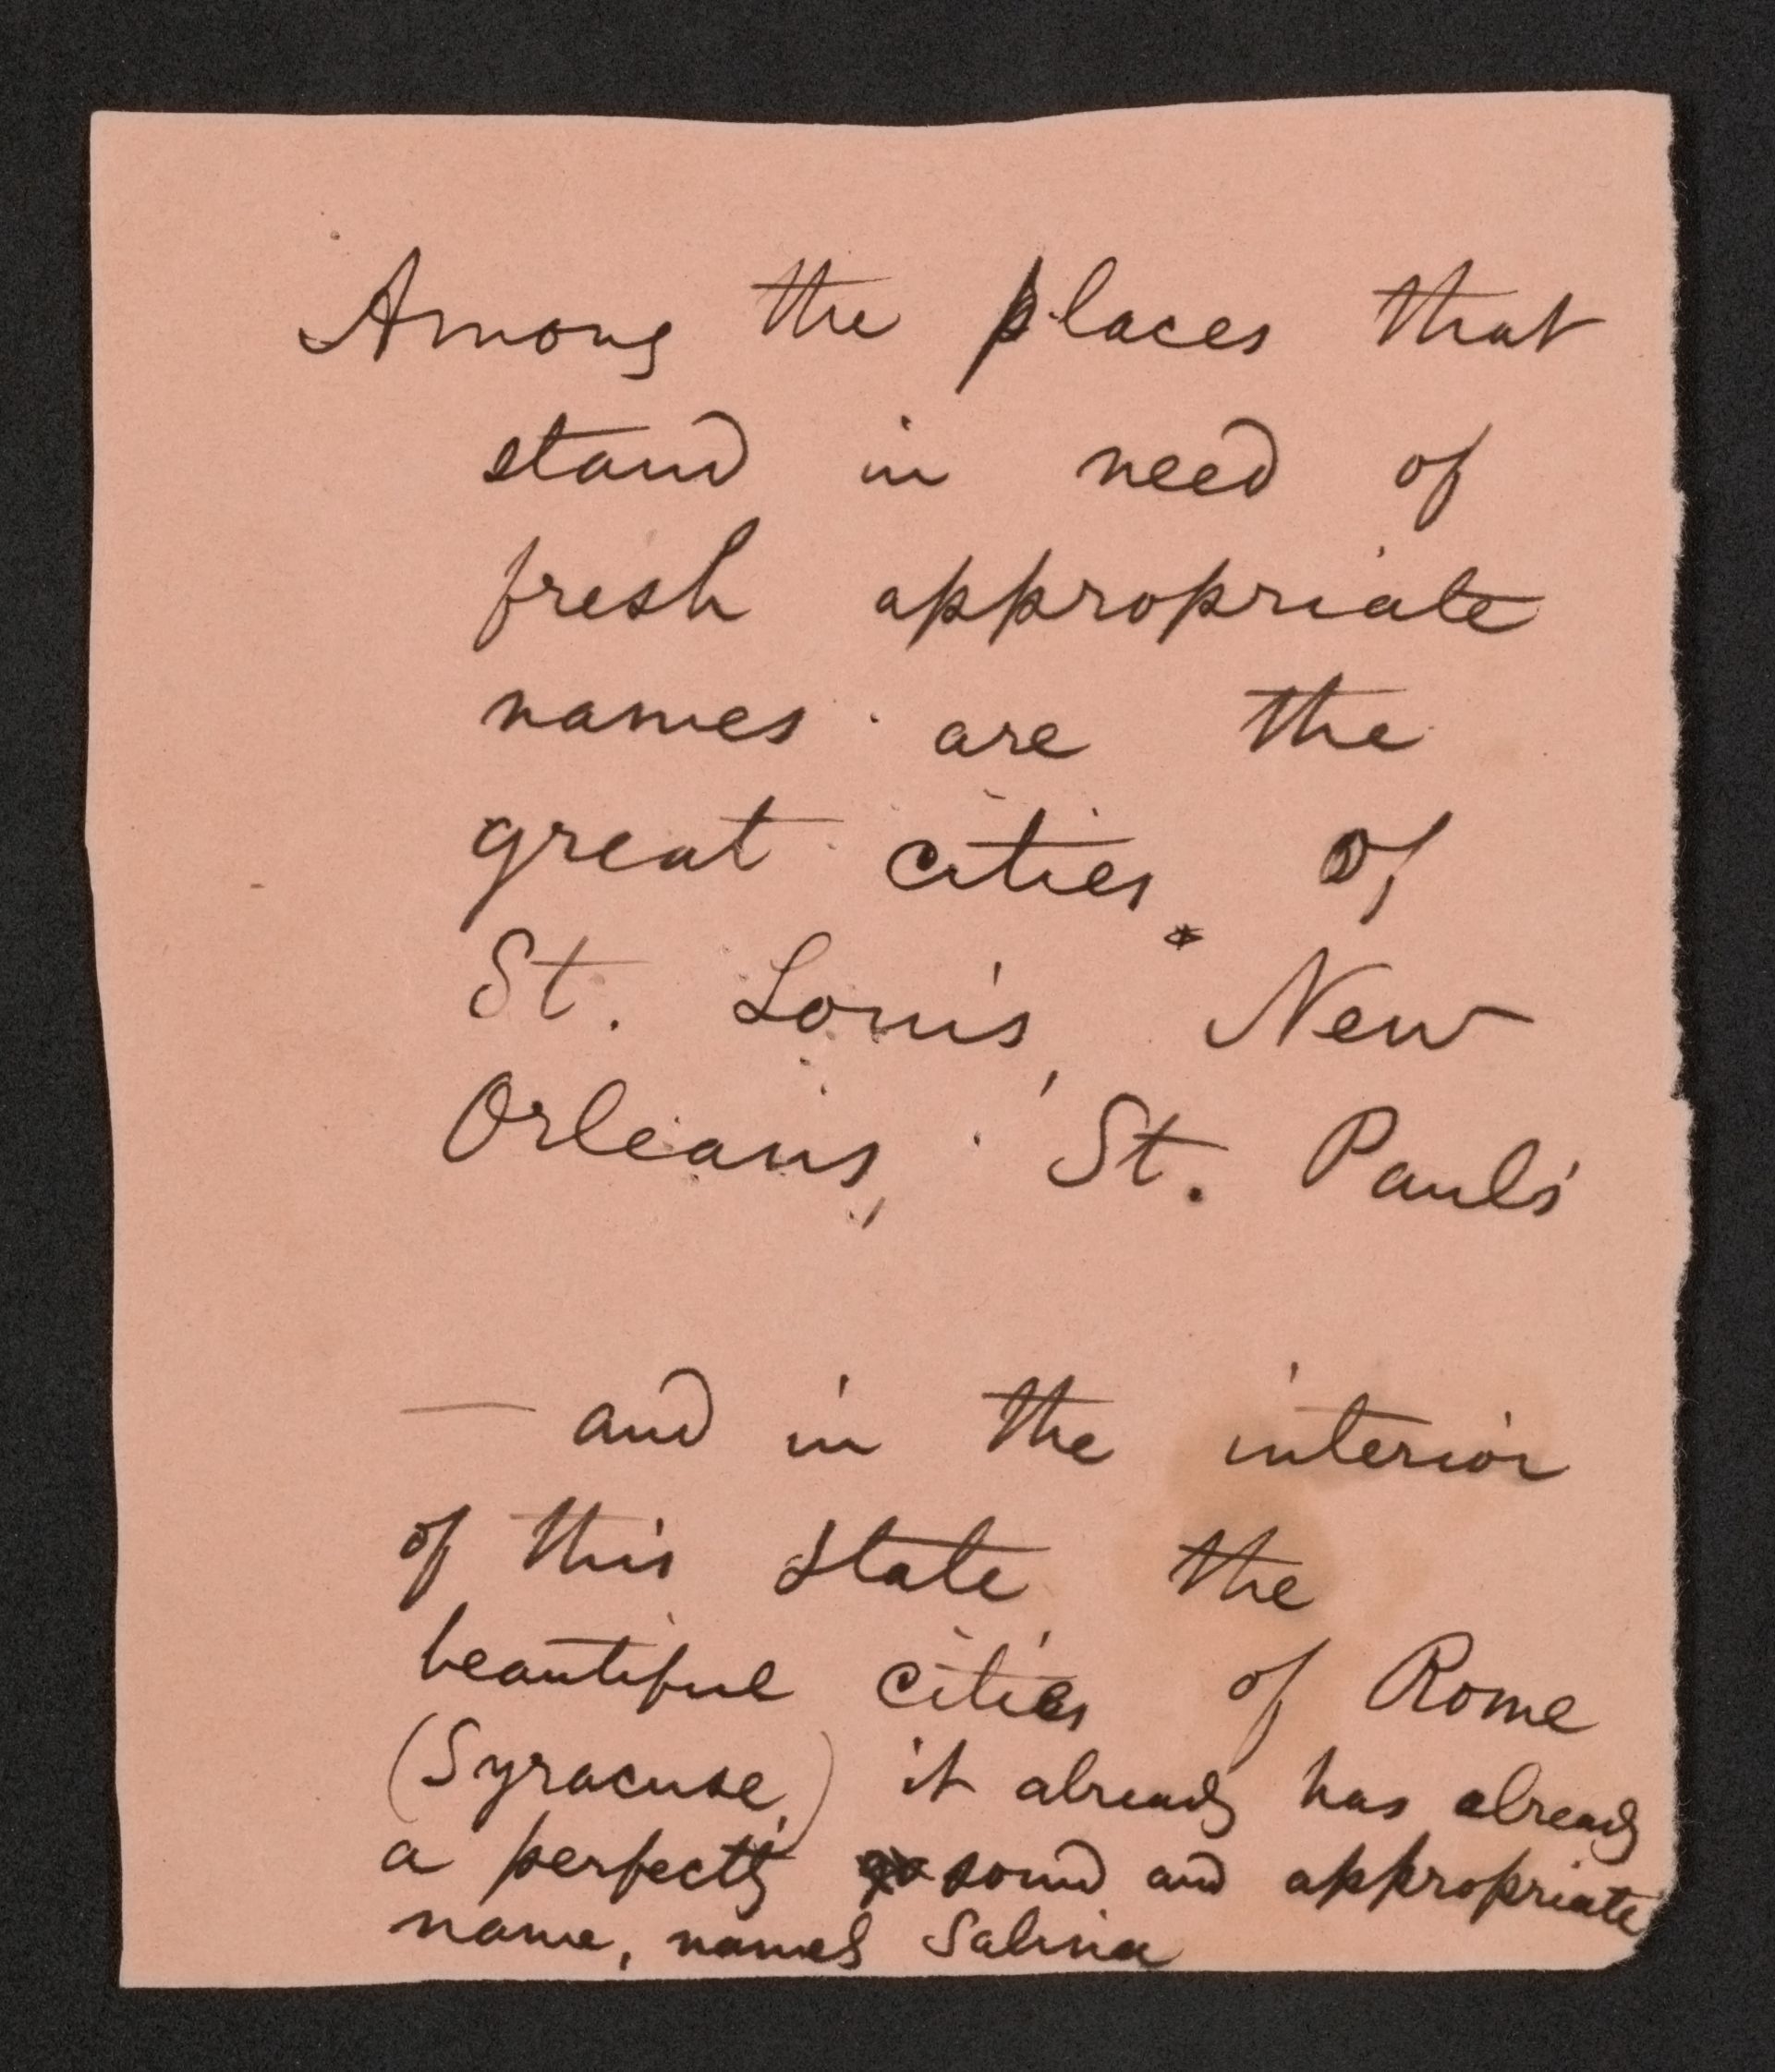 Among the places that
stand in need of
fresh appropriate
names are the
great cities of
St. Louis, New
Orleans, St. Pauls
— and in the interior
of this state, the
beautiful cities of Rome
(Syracuse,) it already has already
a perfectly sound and appropriate
name, named Salina